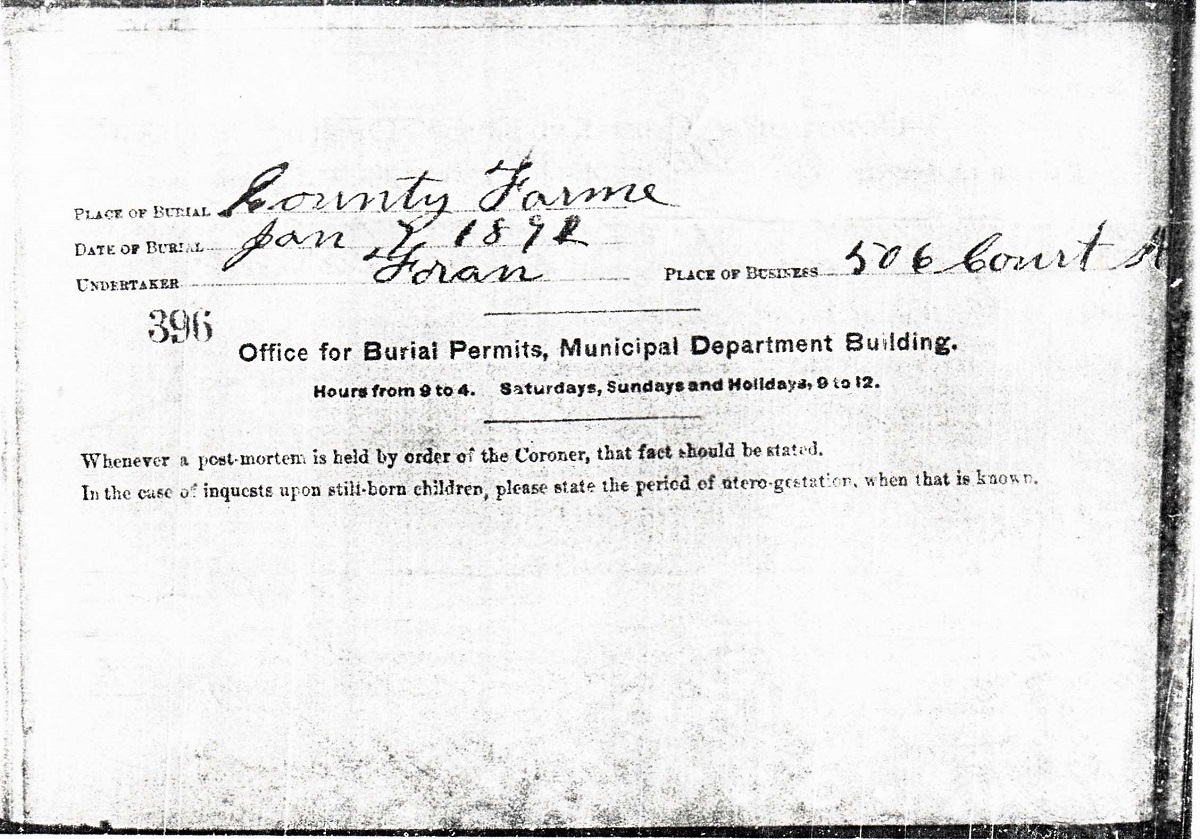 PLACE OF BURIAL County Farme
DATE OF BURIAL Jan 1892
UNDERTAKER Foran PLACE OF BUSINESS 506 Court
396
Office for Burial Permits, Municipal Department Building.
Hours from 9 to 4. Saturdays, Sundays and Holidays, 9 to 12.
Whenever a post-mortem is held by order of the Coroner, that fact should be stated.
In the case of inquests upon still-born children, please state the period of utero-gestation, when that is known.